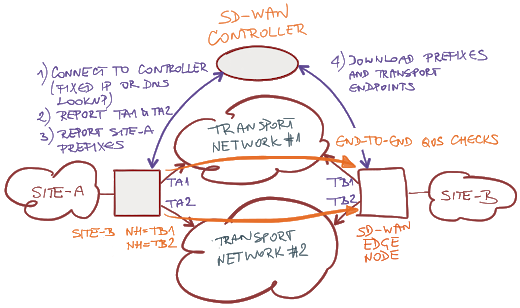 SD-WAN
CONTROLLER
1) CONNECT TO CONTROLLER
(FIXED IP OR DNS
LOOKUP?)
2) REPORT TA1 & TA2
3) REPORT SITE-A
PREFIXES
4) DOWNLOAD PREFIXES
AND TRANSPORT
ENDPOINTS
TRANSPORT
NETWORK #1
END-TO-END QOS CHECKS
SITE-A
TA1
TA2
TB1
TB2
SITE-B
SITE-B NH=TB1
NH=TB2
TRANSPORT
NETWORK #2
SD-WAN
EDGE
NODE